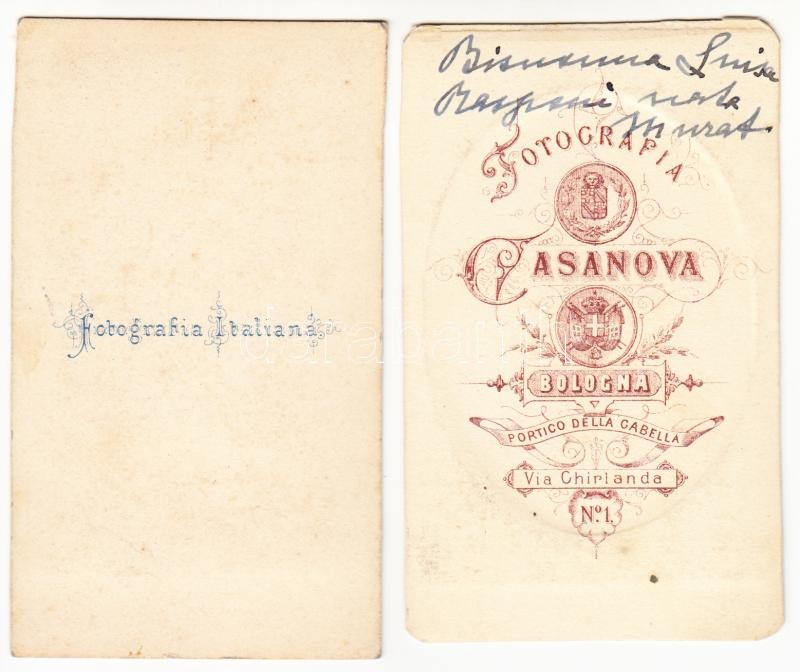 Fotografia Italiana
Bisnonna Luisa
Rasponi nata
Murat.
FOTOGRAFIA
CASANOVA
BOLOGNA
PORTICO DELLA GABELLA
Via Ghirlanda
No. 1.
darabanth